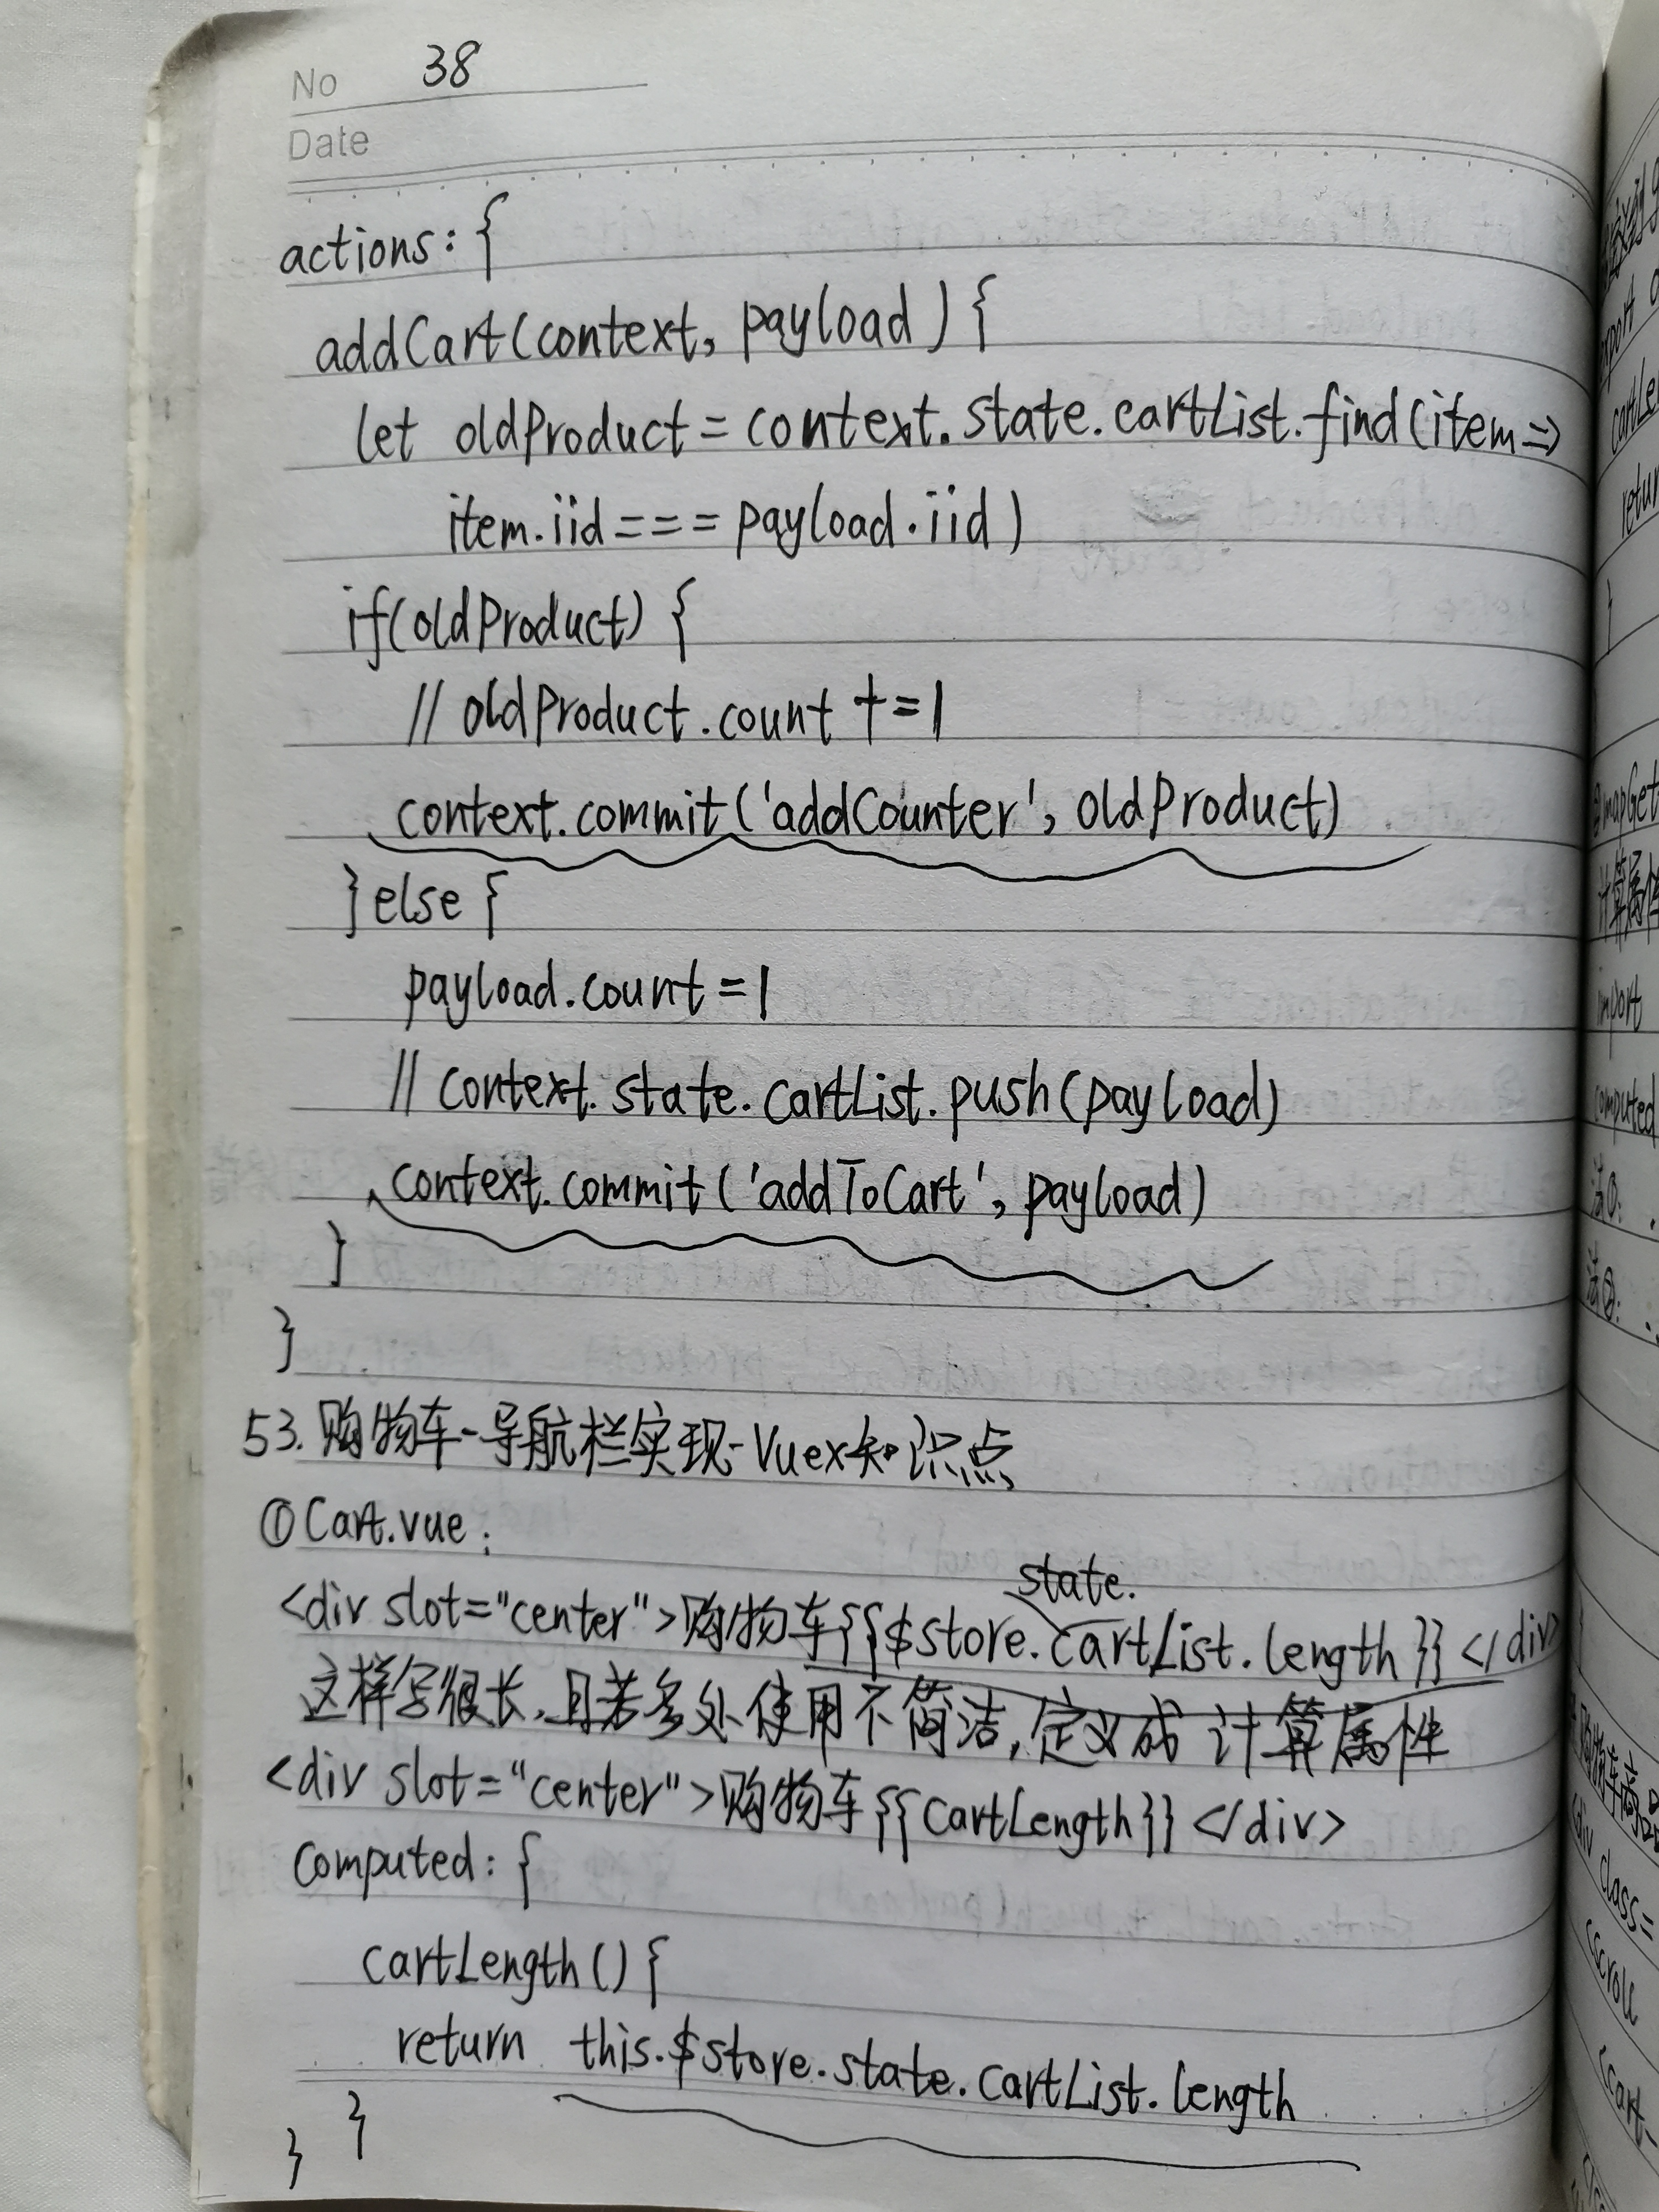 No 38
Date
actions: {
addCart(context, payload) {
let oldProduct = context.state.cartList.find(item =>
item.iid === payload.iid)
if(oldProduct) {
// oldProduct.count += 1
context.commit('addCounter', oldProduct)
} else {
payload.count = 1
// context.state.cartList.push(payload)
context.commit('addToCart', payload)
}
}
53. 购物车-导航栏实现-Vuex知识点
① Cart.vue:
state.
<div slot="center">购物车{{$store.cartList.length}}</div>
这样写很长,且若多处使用不简洁,定义成 计算属性
<div slot="center">购物车{{cartLength}}</div>
computed: {
cartLength() {
return this.$store.state.cartList.length
}
}
计算属性
import
computed
法①:
法②: